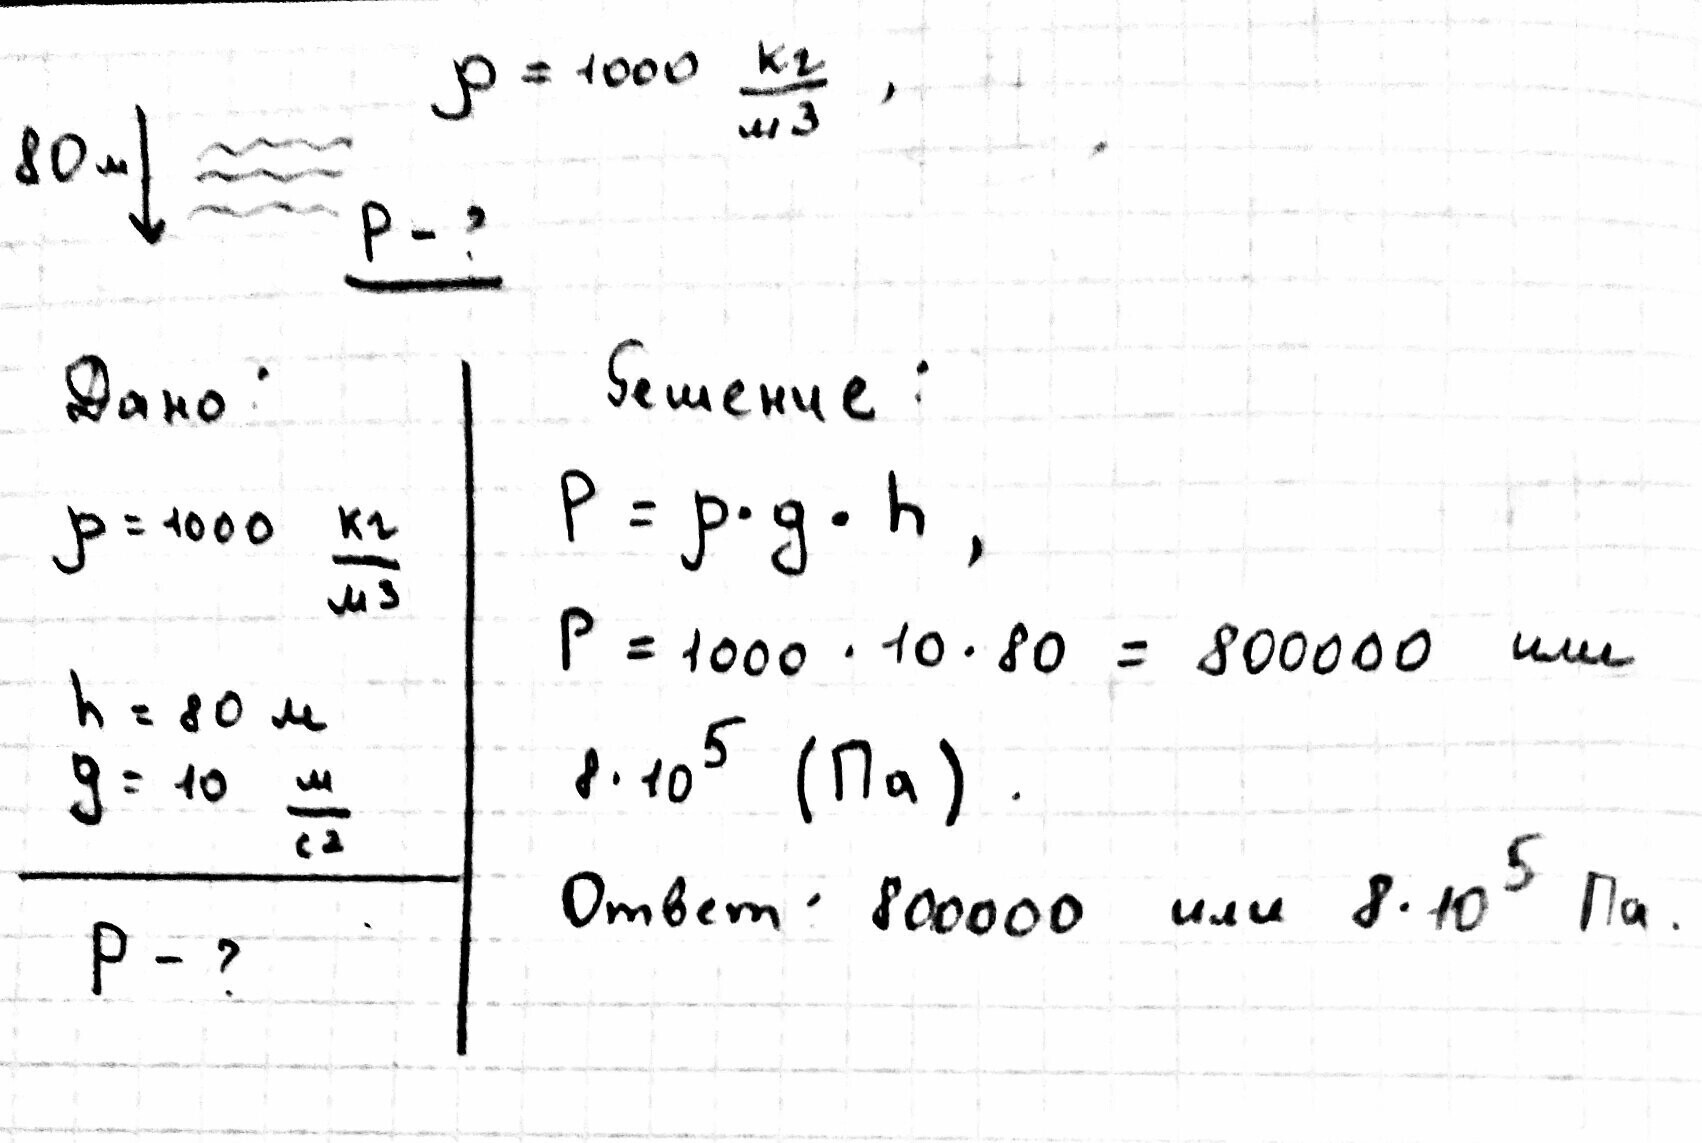 ρ = 1000 кг/м3 ,
80 м
P - ?
Дано:
ρ = 1000 кг/м3
h = 80 м
g = 10 м/с2
P - ?
Решение:
P = ρ · g · h ,
P = 1000 · 10 · 80 = 800000 или
8 · 10⁵ (Па) .
Ответ: 800000 или 8 · 10⁵ Па.